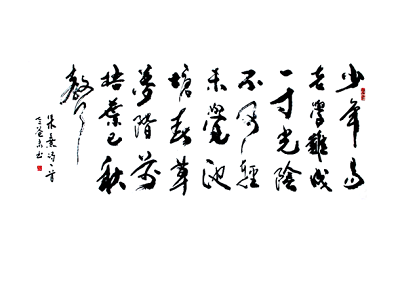 少年易
老學難成
一寸光陰
不可輕
未覺池
塘春草
夢階前
梧葉已秋
聲
朱熹詩一首
書